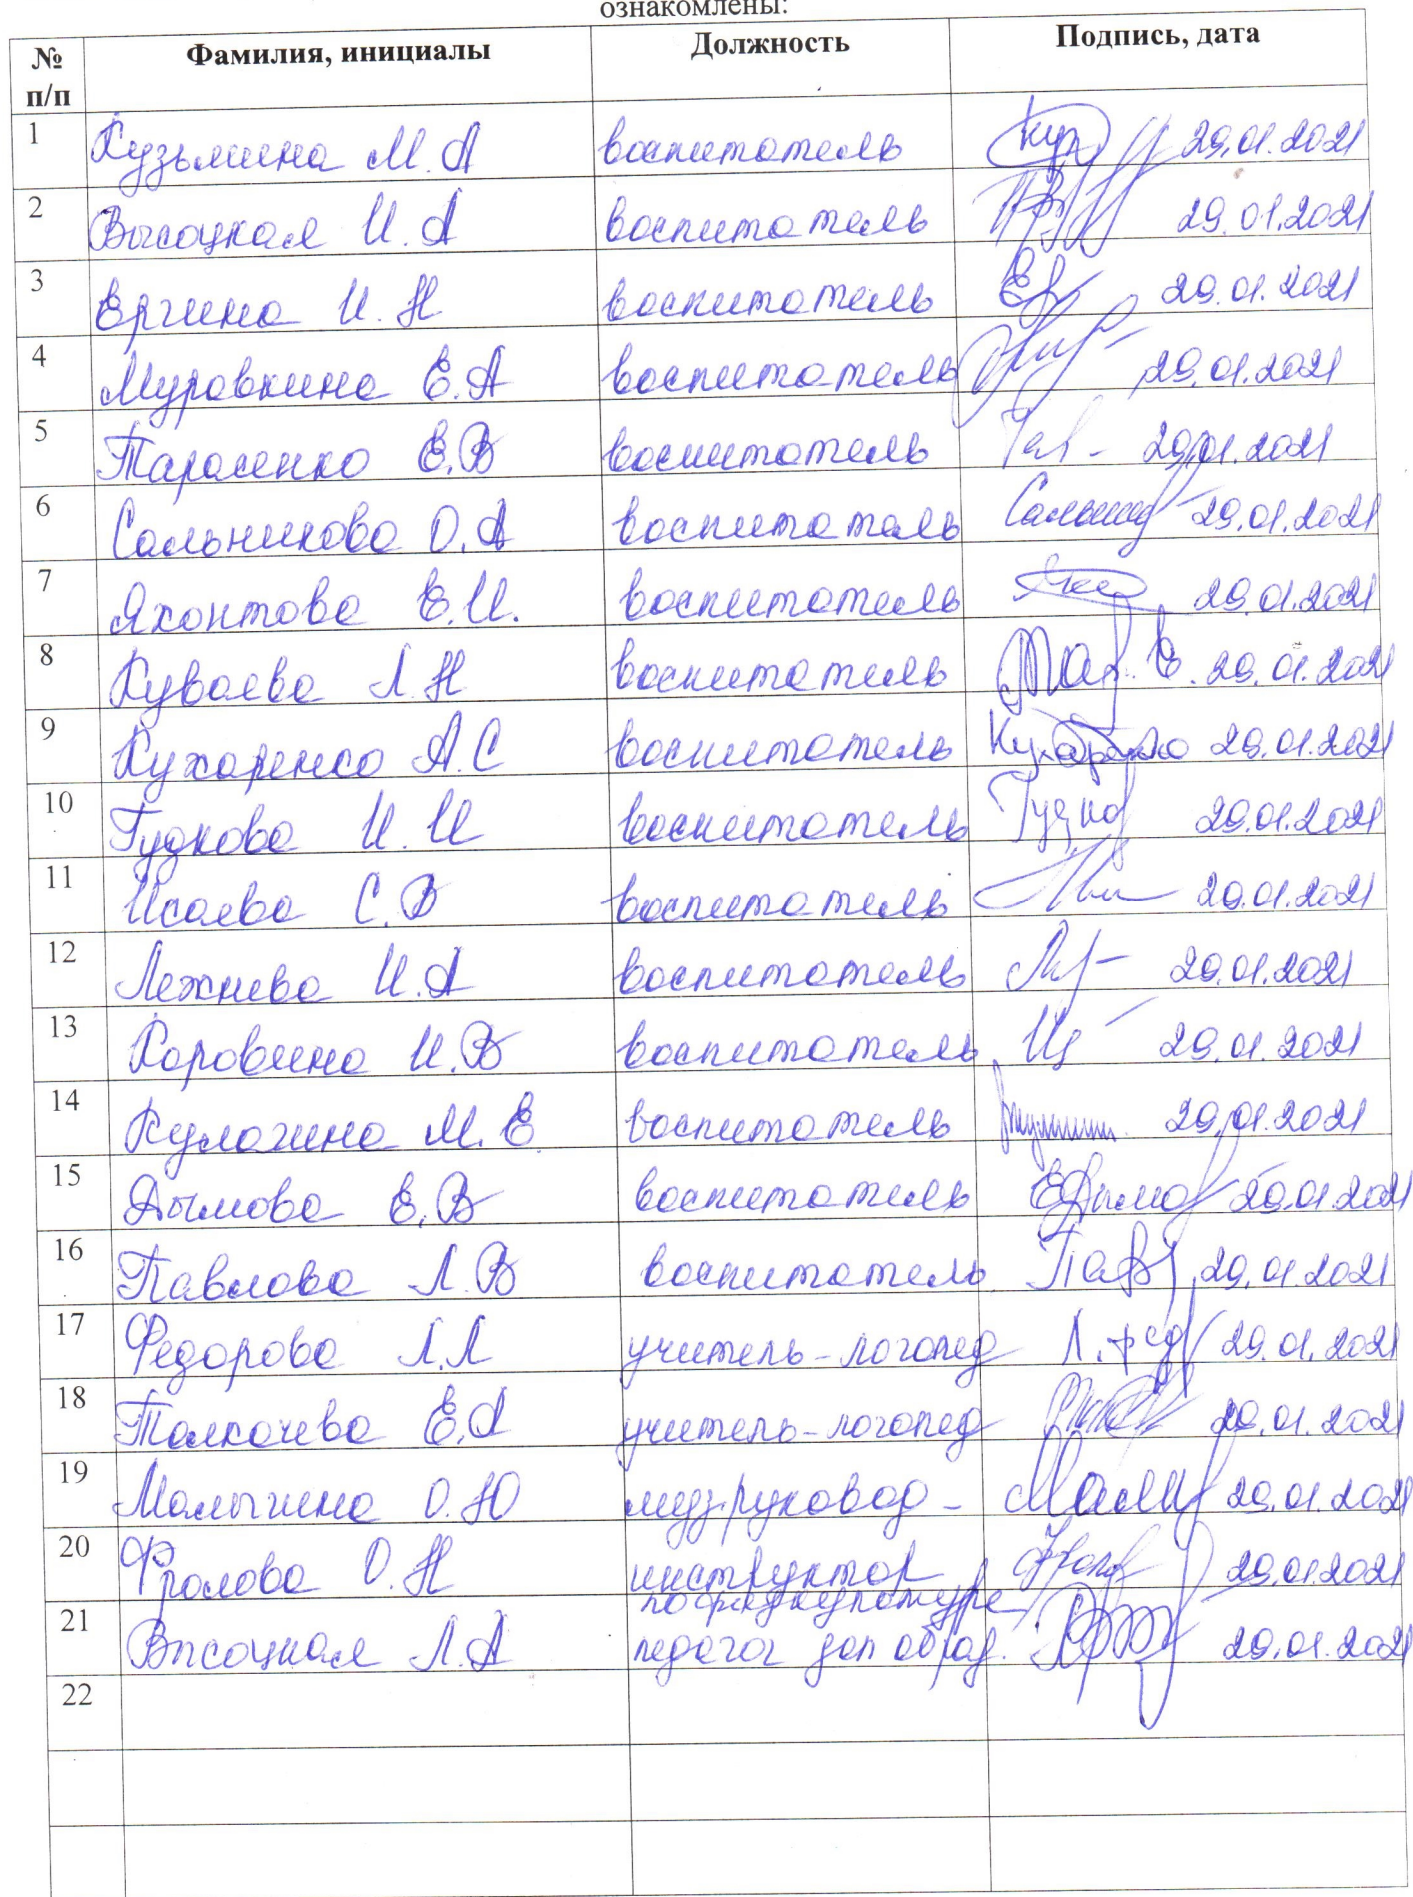 ознакомлены:
№ п/п Фамилия, инициалы Должность Подпись, дата
1 Кузьмина М.А воспитатель Куз 29.01.2021
2 Высоцкая И.А воспитатель 29.01.2021
3 Ергина И.Н воспитатель 29.01.2021
4 Муравкина Е.А воспитатель 29.01.2021
5 Тарасенко Е.В воспитатель 29.01.2021
6 Сальникова О.А воспитатель 29.01.2021
7 Яхонтова Е.И. воспитатель 29.01.2021
8 Куваева Л.Н воспитатель 29.01.2021
9 Кухаренко А.С воспитатель Кухаренко 29.01.2021
10 Гудкова И.И воспитатель Гудков 29.01.2021
11 Исаева С.В воспитатель 29.01.2021
12 Лежнева И.А воспитатель 29.01.2021
13 Коровина И.В воспитатель 29.01.2021
14 Кулагина М.Е воспитатель 29.01.2021
15 Дымова Е.В воспитатель ЕДымов 29.01.2021
16 Павлова Л.В воспитатель Пав 29.01.2021
17 Федорова Л.Л учитель-логопед Л.Фед 29.01.2021
18 Толкачева Е.А учитель-логопед 29.01.2021
19 Малыгина О.Ю муз.руковод- Малы 29.01.2021
20 Фролова О.Н инструктор 29.01.2021
по физкультуре
21 Высоцкая Л.А педагог доп образ. 29.01.2021
22